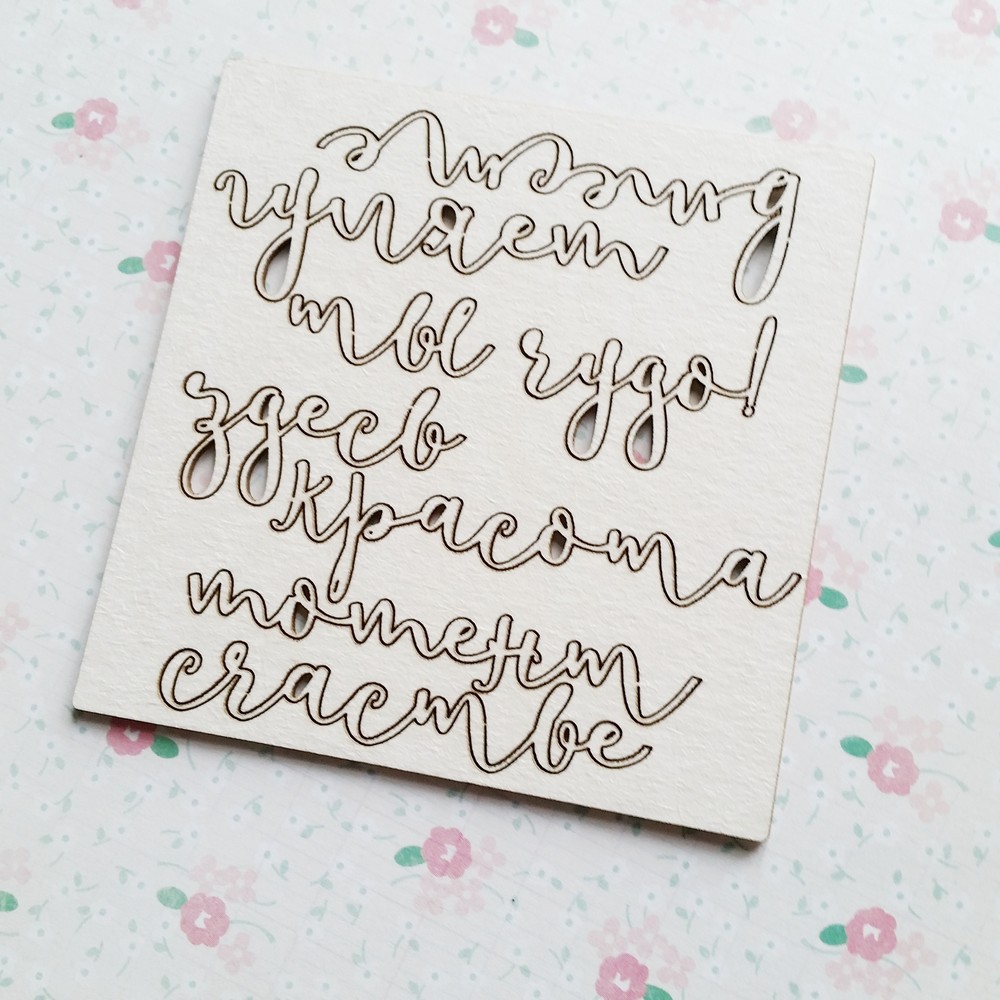 гуляет
ты чудо!
здесь
красота
момент
счастье